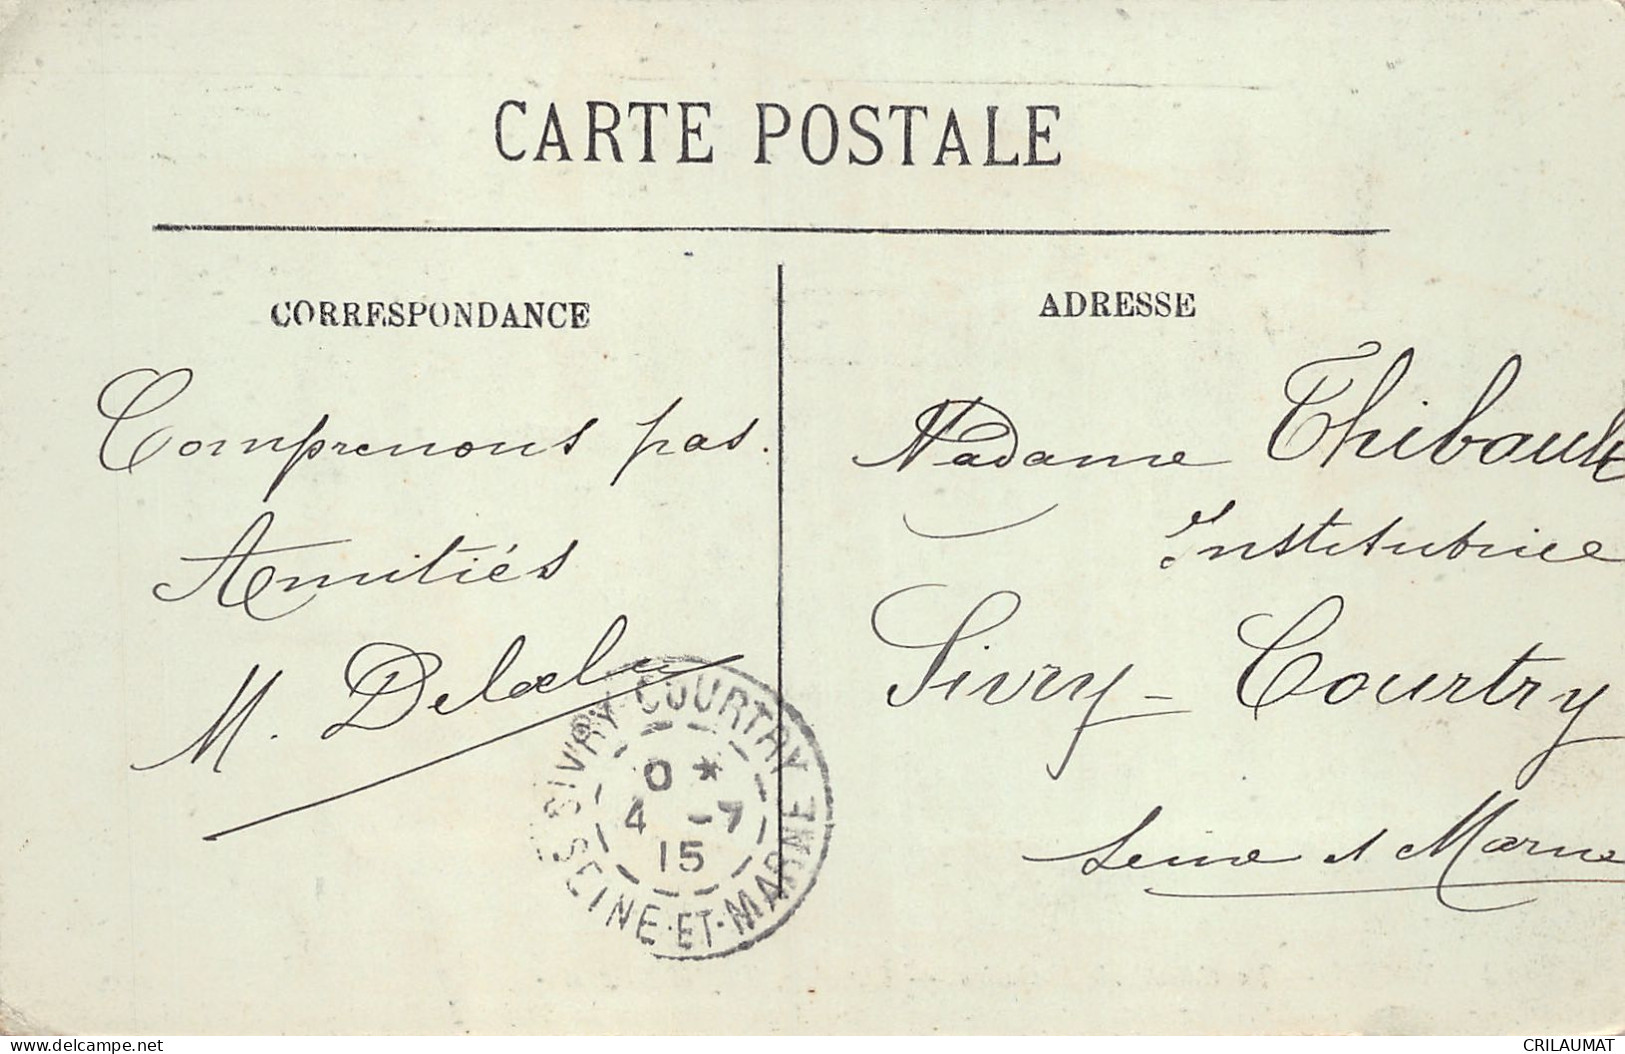 CARTE POSTALE
CORRESPONDANCE
Comprenons pas.
Amitiés
M.
ADRESSE
Madame Thibault
Institutrice
Sivry-Courtry
Seine et Marne
SIVRY-COURTRY
0 *
4 -7
15
SEINE-ET-MARNE
delcampe.net
CRILAUMAT